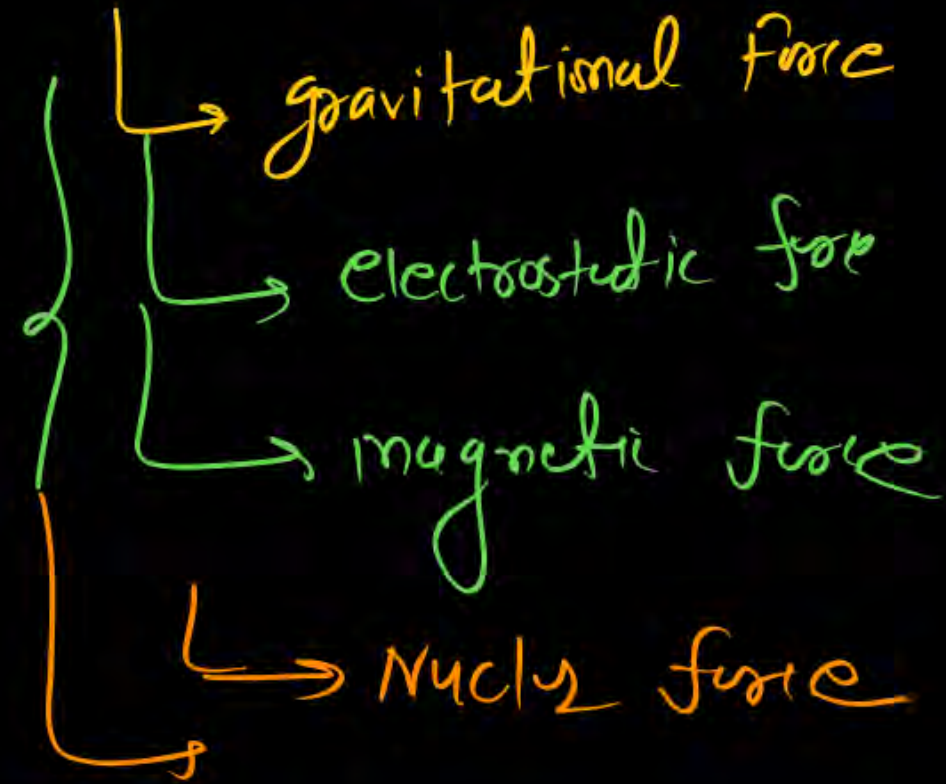 gravitational force
electrostatic force
magnetic force
Nuclear force